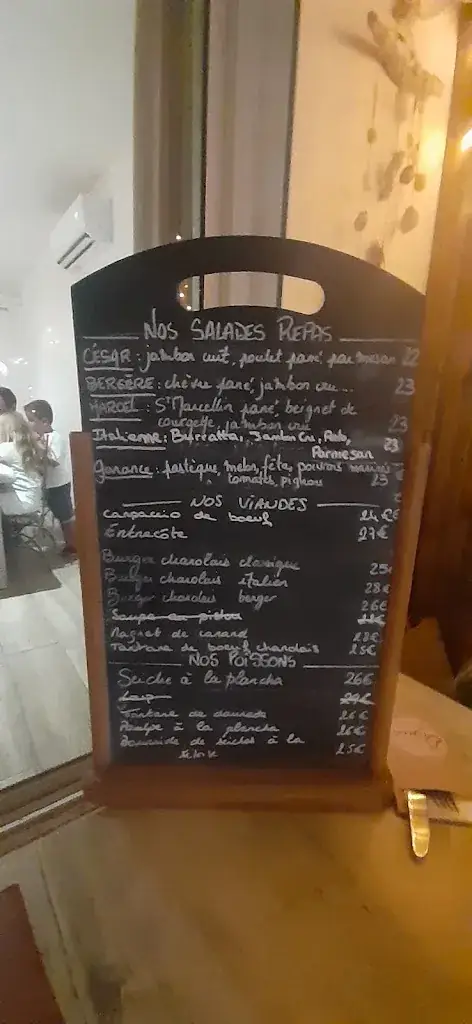 NOS SALADES REPAS
CÉSAR : jambon cuit, poulet pané, parmesan 22
BERGÈRE : chèvre pané, jambon cru... 23
MARCEL : St Marcellin pané, beignet de
courgette, jambon cru 23
Italienne : Burratta, Jambon Cru, 23
Parmesan
Garance : pastèque, melon, fêta, poivrons marinés
tomates, pignons 23
NOS VIANDES
Carpaccio de boeuf 24€
Entrecôte 27€
Burger charolais classique 25€
Burger charolais italien 28€
Burger charolais berger 26€
Soupe au pistou
Magret de canard 28€
Tartare de boeuf charolais 25€
NOS POISSONS
Seiche à la plancha 26€
Loup 29€
Tartare de daurade 26€
Poulpe à la plancha 26€
de seiches à la 25€